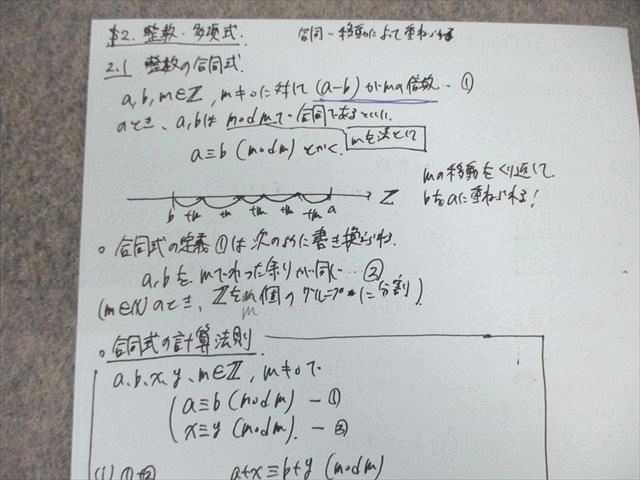 §2. 整数・多項式.
合同-移動によって重ねられる
2.1 整数の合同式.
a, b, m∈ℤ, m≠0に対して (a-b)がmの倍数 … ①
のとき、a, bは mod mで合同であるといい、
a≡b (mod m) とかく. mを法として
mの移動をくり返して
bをaに重ねられる!
b +m +m +m +m +m a ℤ
○ 合同式の定義①は次のように書き換えられる.
a, bを mでわった余りが同じ … ②
(m∈ℕ)のとき、ℤをm個のグループに分割).
m
○ 合同式の計算法則
a, b, x, y, m∈ℤ, m≠0で
a≡b (mod m) - ①
x≡y (mod m). - ②
(1) ①+② a+x≡b+y (mod m)